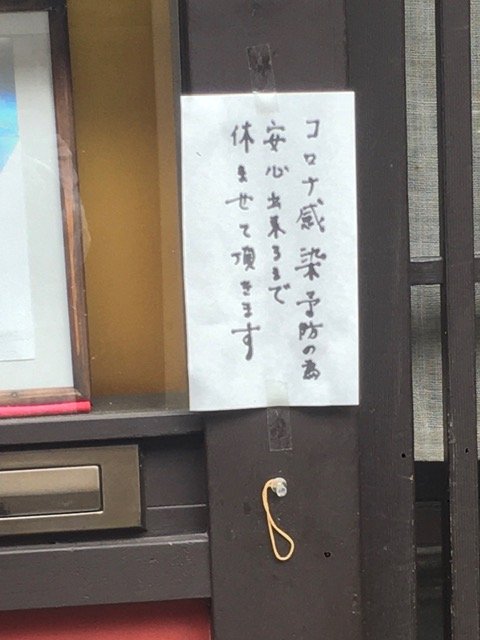 コロナ感染予防の為
安心出来るまで
休ませて頂きます